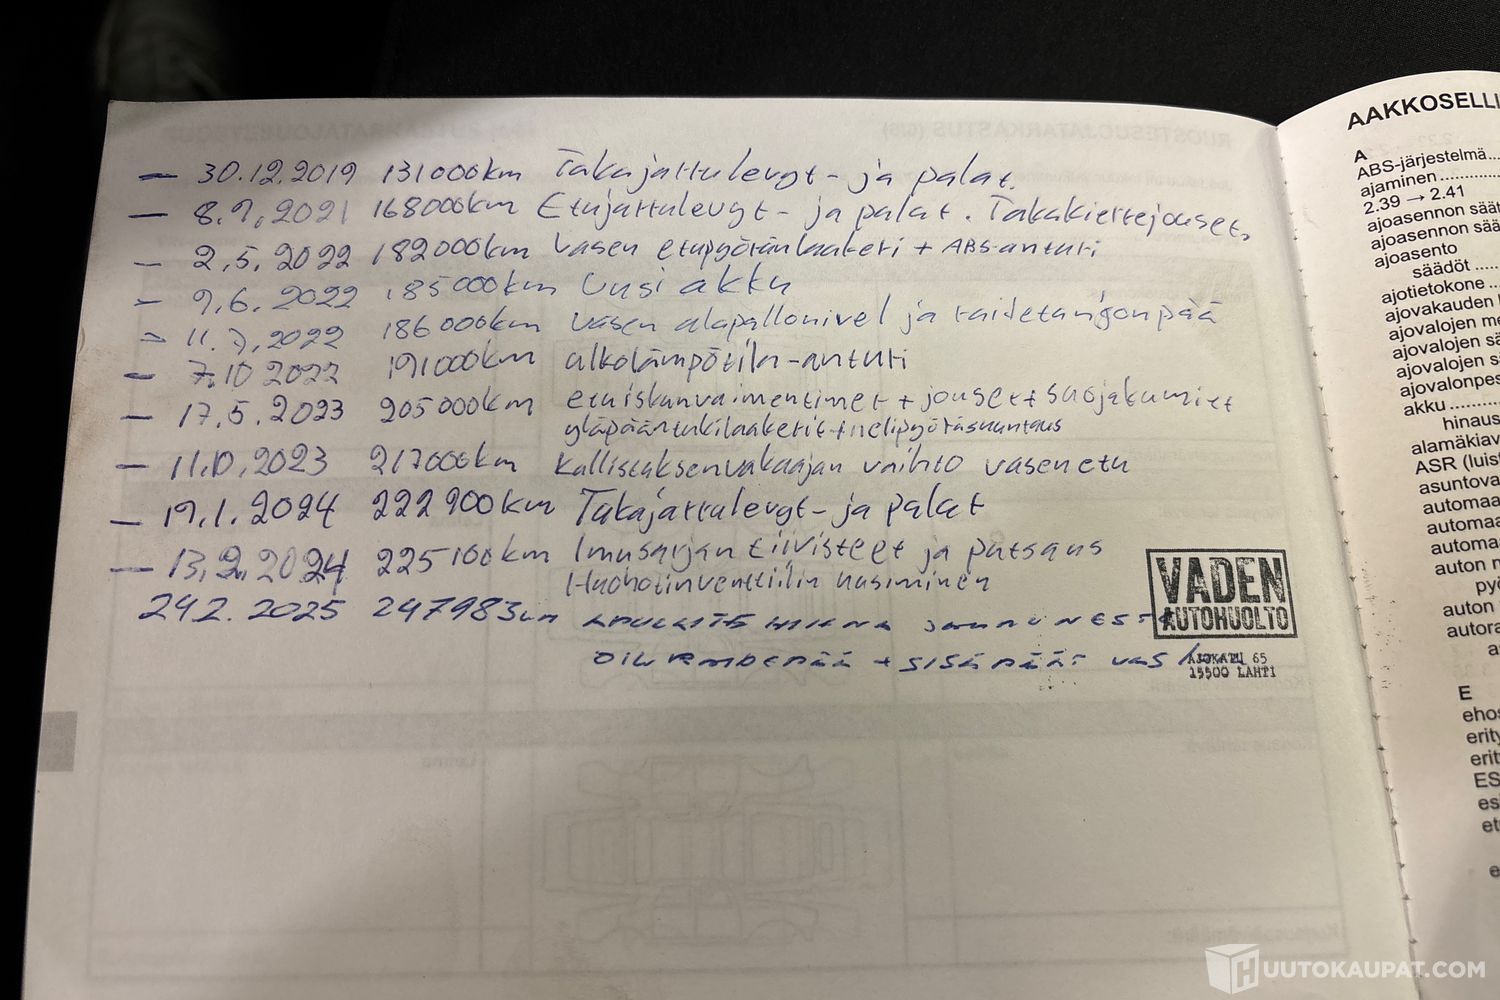 — 30.12.2019 131000km Takajarrulevyt- ja palat.
— 8.9.2021 168000km Etujarrulevyt- ja palat. Takakierrejouset.
— 2.5.2022 182000km Vasen etupyöränlaakeri + ABS-anturi
— 9.6.2022 185000km Uusi akku
— 11.7.2022 186000km Vasen alapallonivel ja raidetangonpää
— 7.10 2022 191000km ulkolämpötila-anturi
— 17.5.2023 205000km etuiskunvaimentimet + jouset + suojakumit
yläpääntukilaakerit + nelipyöräsuuntaus
— 11.10.2023 217000km kallistuksenvakaajan vaihto vasen etu
— 19.1.2024 222900km Takajarrulevyt- ja palat
— 13.2.2024 225100km Imusarjan tiivisteet ja putsaus
Huohotinventtiilin uusiminen
24.2.2025 247983km
+ SISÄPÄÄT VAS
VADEN
AUTOHUOLTO
AJOKATU 65
15500 LAHTI
AAKKOSELLI
A
ABS-järjestelmä...
ajaminen
2.39 → 2.41
ajoasennon säät
ajoasennon sää
ajoasento
säädöt
ajotietokone
ajovakauden
ajovalojen me
ajovalojen sä
ajovalojen s
ajovalonpes
akku
hinaus
alamäkiav
ASR (luist
asuntova
automaa
automaa
automaa
auton m
pyö
auton
autora
E
ehos
erity
erit
ES
esi
et
e
RUOSTESUOJATARKASTUS (6/6)
HUUTOKAUPAT.COM